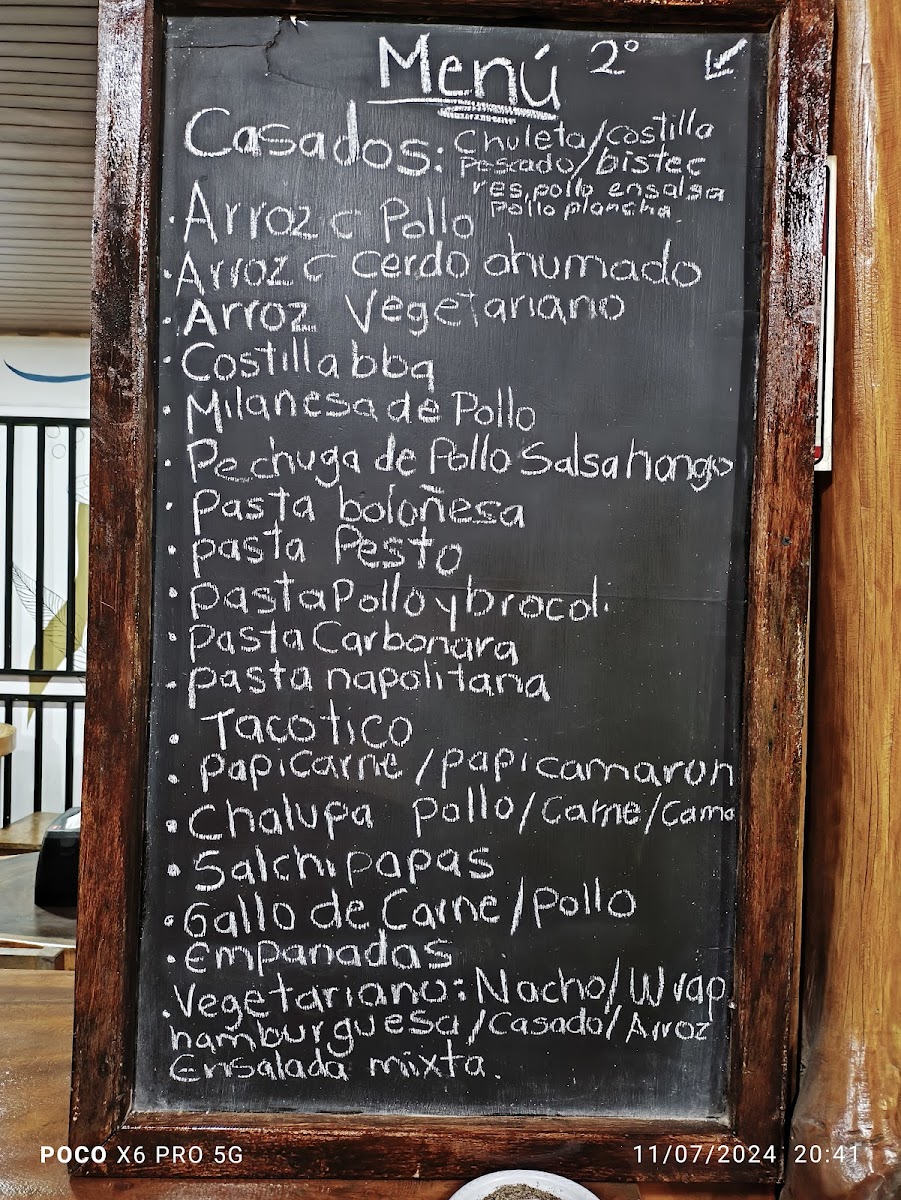 Menú 2°
Casados: Chuleta/costilla
Pescado/bistec
res, pollo en salsa
Pollo plancha.
. Arroz c Pollo
. Arroz c cerdo ahumado
. Arroz Vegetariano
. Costilla bbq
. Milanesa de Pollo
. Pechuga de Pollo Salsa hongo
. Pasta boloñesa
. pasta Pesto
. pasta Pollo y brocoli
. pasta Carbonara
. pasta napolitana
. Taco tico
. papi carne / papi camaron
. Chalupa pollo/Carne/Cama
. Salchipapas
. Gallo de Carne/pollo
. Empanadas
. Vegetariano: Nacho/Wrap.
hamburguesa/Casado/Arroz
Ensalada mixta.
POCO X6 PRO 5G
11/07/2024 20:41